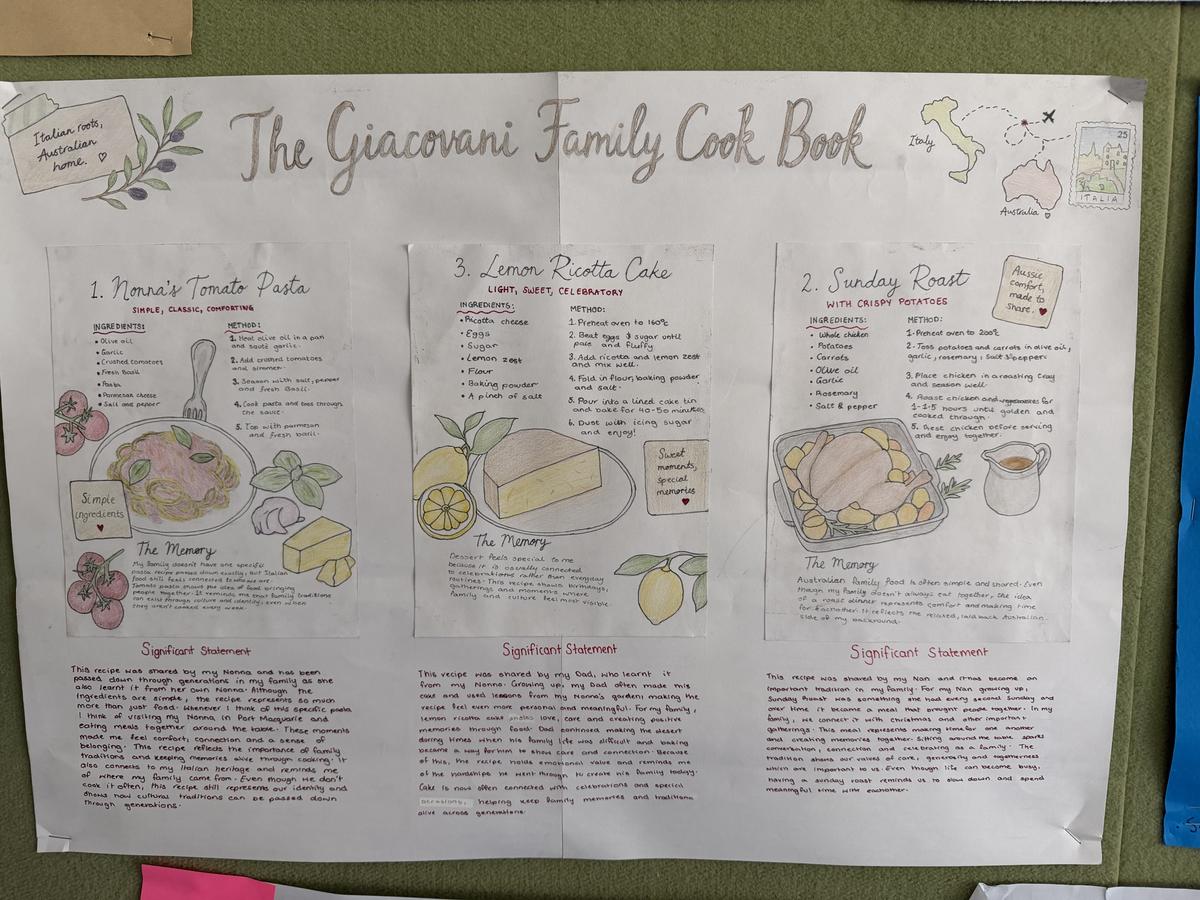 Italian roots,
Australian
home. ♡
The Giacovani Family Cook Book
Italy
Australia ♡
25
ITALIA
1. Nonna's Tomato Pasta
SIMPLE, CLASSIC, COMFORTING
INGREDIENTS:
• Olive oil
• Garlic
• Crushed tomatoes
• Fresh Basil
• Pasta
• Parmesan cheese
• Salt and pepper
METHOD:
1. Heat olive oil in a pan
and sauté garlic.
2. Add crushed tomatoes
and simmer.
3. Season with salt, pepper
and fresh basil.
4. Cook pasta and toss through
the sauce.
5. Top with parmesan
and fresh basil.
Simple
ingredients
♥
The Memory
My family doesn't have one specific
pasta recipe passed down exactly, but Italian
food still feels connected to who we are.
Tomato pasta shows the idea of food bringing
people together. It reminds me that family traditions
can exist through culture and identity, even when
they aren't cooked every week.
Significant Statement
This recipe was shared by my Nonna and has been
passed down through generations in my family as she
also learnt it from her own Nonna. Although the
ingredients are simple, the recipe represents so much
more than just food. Whenever I think of this specific pasta
I think of visiting my Nonna in Port Macquarie and
eating meals together around the table. These moments
made me feel comfort, connection and a sense of
belonging. This recipe reflects the importance of family
traditions and keeping memories alive through cooking. It
also connects to my Italian heritage and reminds me
of where my family came from. Even though we don't
cook it often, this recipe still represents our identity and
shows how cultural traditions can be passed down
through generations.
3. Lemon Ricotta Cake
LIGHT, SWEET, CELEBRATORY
INGREDIENTS:
• Ricotta cheese
• Eggs
• Sugar
• Lemon zest
• Flour
• Baking powder
• A pinch of salt
METHOD:
1. Preheat oven to 160°c
2. Beat eggs & sugar until
pale and fluffy
3. Add ricotta and lemon zest
and mix well.
4. Fold in flour, baking powder
and salt.
5. Pour into a lined cake tin
and bake for 40-50 minutes
6. Dust with icing sugar
and enjoy!
Sweet
moments,
special
memories
♥
The Memory
Dessert feels special to me
because it is usually connected
to celebrations rather than everyday
routines. This recipe shows birthdays,
gatherings and moments where
family and culture feel most visible.
Significant Statement
This recipe was shared by my Dad, who learnt it
from my Nonna. Growing up, my Dad often made this
cake and used lemons from my Nonna's garden, making the
recipe feel even more personal and meaningful. For my family,
lemon ricotta cake shows love, care and creating positive
memories through food. Dad continued making the desert
during times when his family life was difficult and baking
became a way for him to show care and connection. Because
of this, the recipe holds emotional value and reminds me
of the hardships he went through to create his family today.
Cake is now often connected with celebrations and special
occasions, helping keep family memories and traditions
alive across generations.
2. Sunday Roast
WITH CRISPY POTATOES
Aussie
comfort,
made to
share. ♥
INGREDIENTS:
• Whole chicken
• Potatoes
• Carrots
• Olive oil
• Garlic
• Rosemary
• Salt & pepper
METHOD:
1. Preheat oven to 200°c
2. Toss potatoes and carrots in olive oil,
garlic, rosemary, salt & pepper.
3. Place chicken in a roasting tray
and season well.
4. Roast chicken and vegetables for
1-1.5 hours until golden and
cooked through.
5. Rest chicken before serving
and enjoy together.
The Memory
Australian family food is often simple and shared. Even
though my family doesn't always eat together, the idea
of a roast dinner represents comfort and making time
for eachother. It reflects the relaxed, laid back Australian
side of my background.
Significant Statement
This recipe was shared by my Nan and it has become an
important tradition in my family. For my Nan growing up,
Sunday Roast was something she had every second Sunday and
over time it became a meal that brought people together. In my
family, we connect it with christmas and other important
gatherings. This meal represents making time for one another
and creating memories together. Sitting around the table sparks
conversation, connection and celebrating as a family. The
tradition shows our values of care, generosity and togetherness
which are important to us. Even though life can become busy,
having a sunday roast reminds us to slow down and spend
meaningful time with eachother.